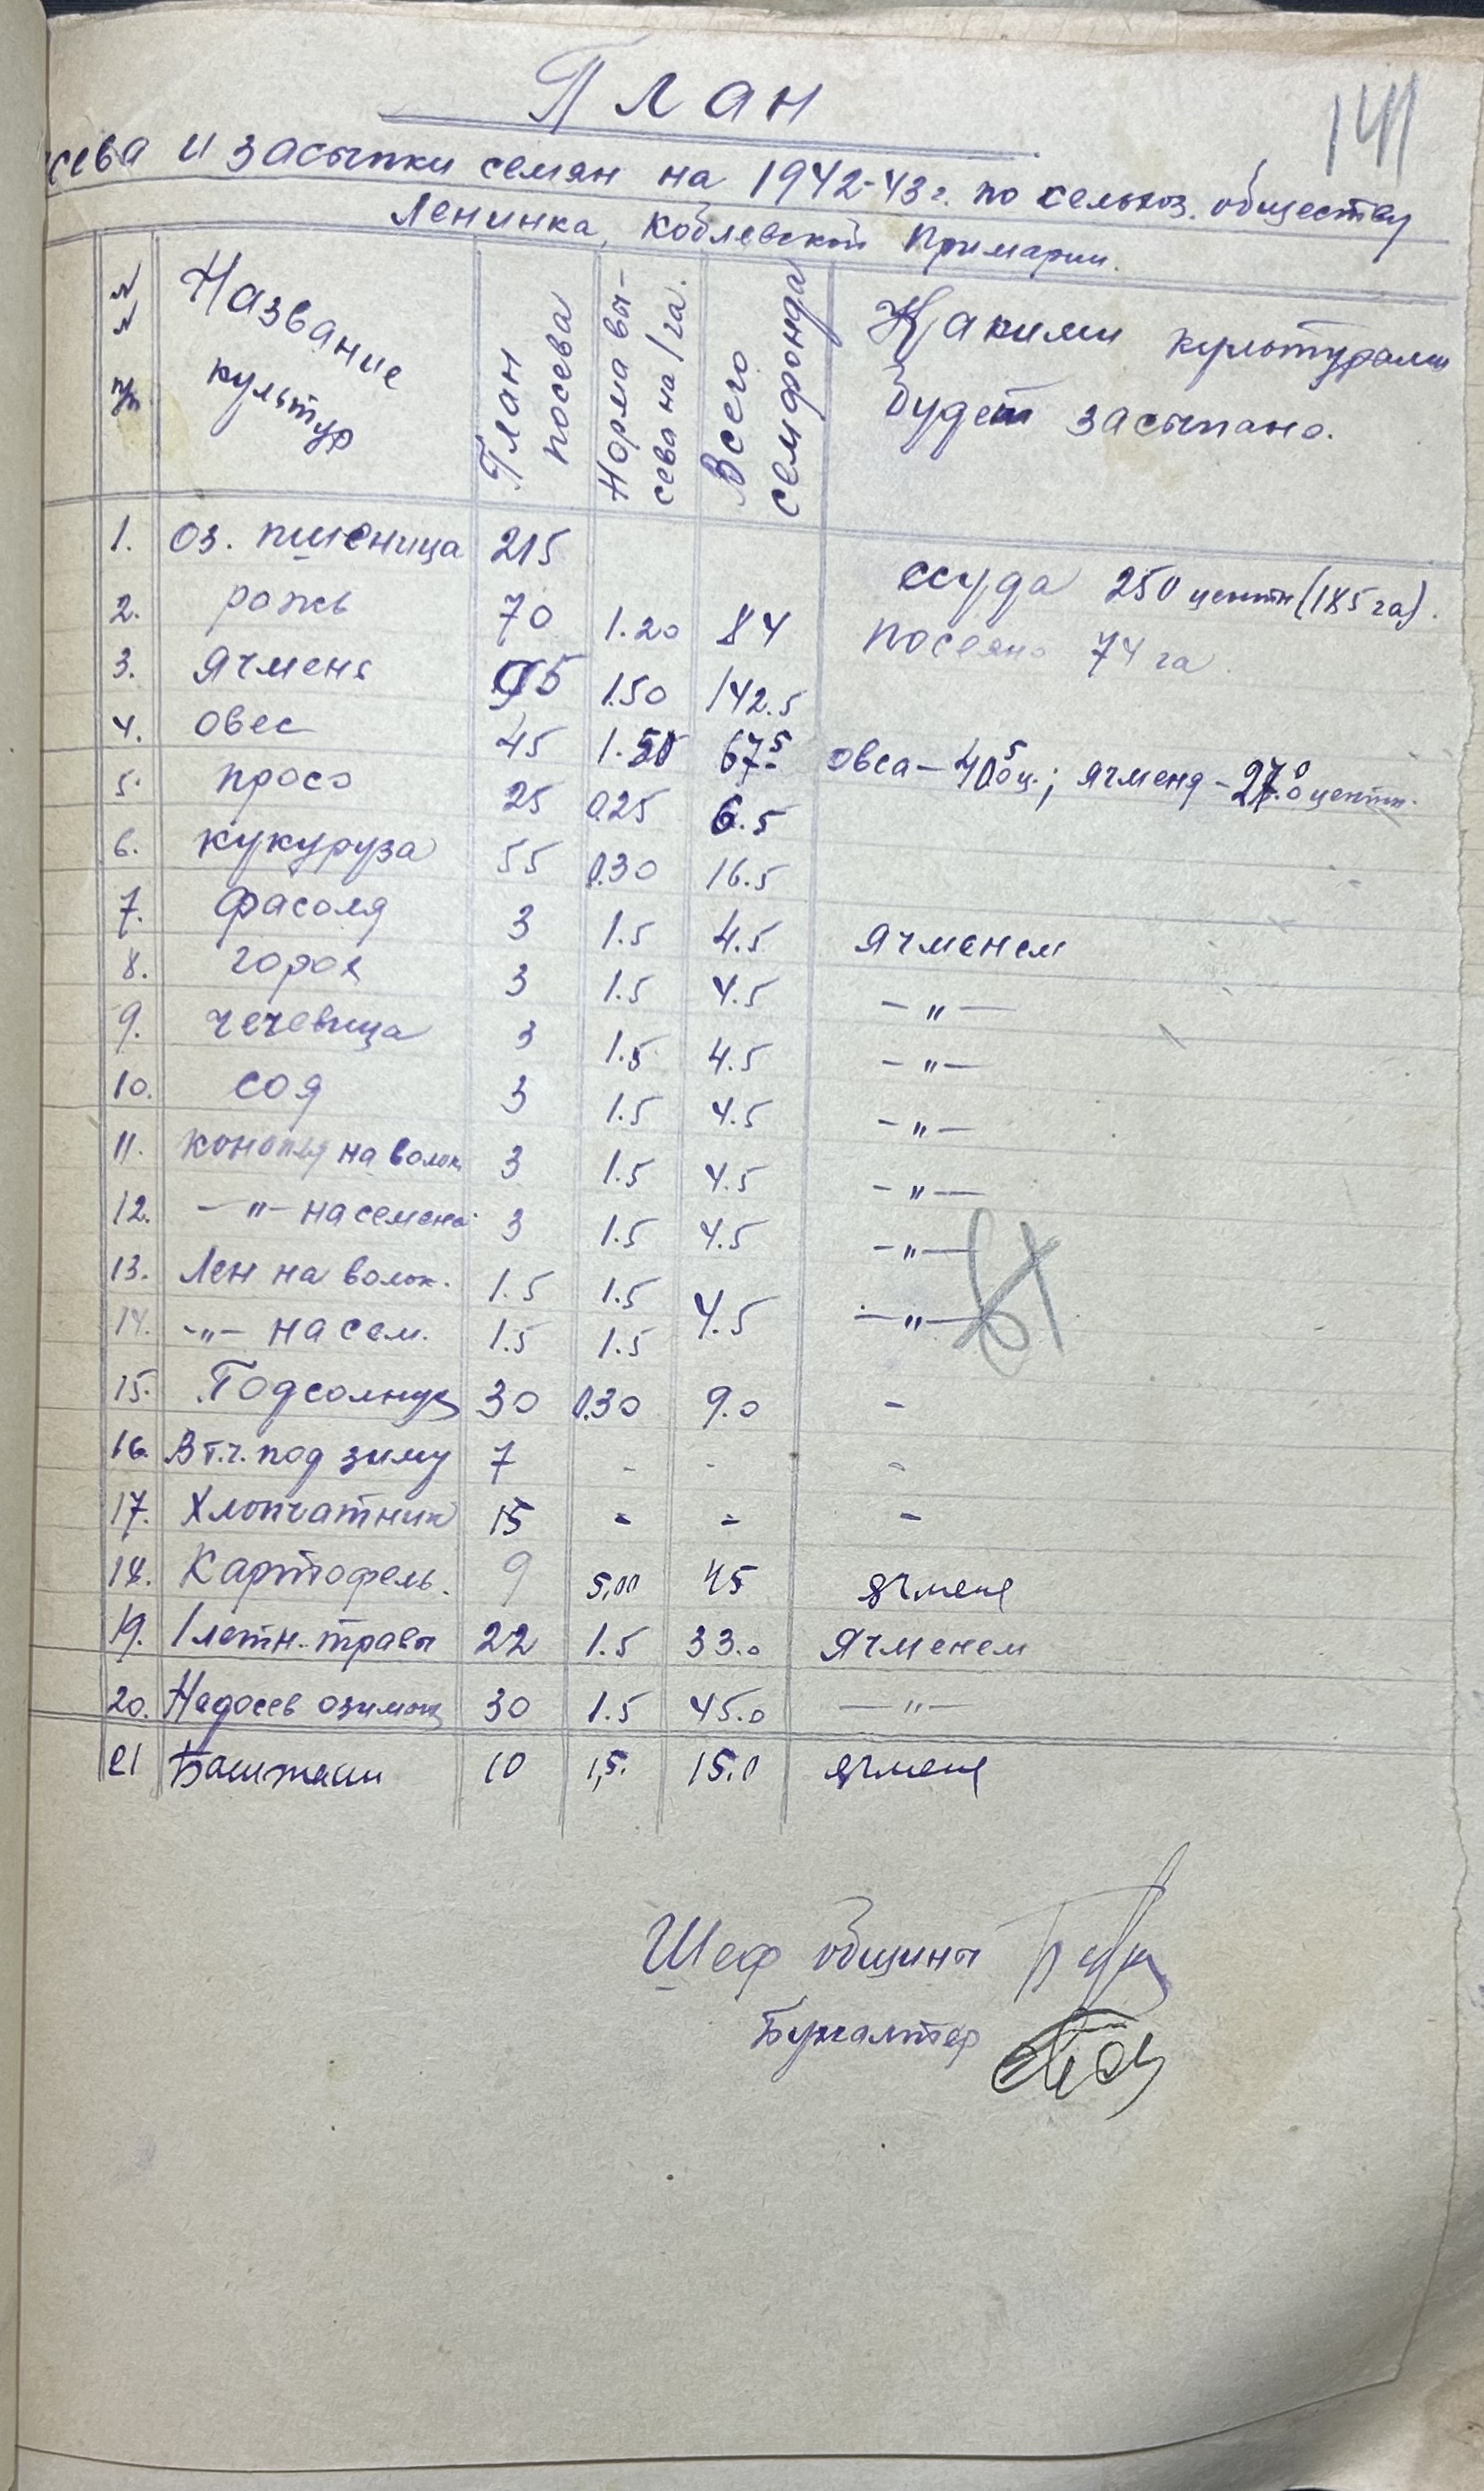 План
141
сева и засыпки семян на 1942-43 г. по сельхоз. обществу
Ленинка, Коблевской Примарии.
№№ п/п | Название культур | План посева | Норма высева на 1 га. | Всего семфонда | Какими культурами будет засыпано.
1. оз. пшеница 215 ссуда 250 центн (185 га).
2. рожь 70 1.20 84 посеяно 74 га
3. Ячменя 95 1.50 142.5
4. овес 45 1.50 67.5 овса – 40.5 ц.; ячменя – 27.0 центн.
5. просо 25 0.25 6.5
6. кукуруза 55 0.30 16.5
7. фасоля 3 1.5 4.5 ячменем
8. горох 3 1.5 4.5 – " –
9. чечевица 3 1.5 4.5 – " –
10. соя 3 1.5 4.5 – " –
11. конопля на волок. 3 1.5 4.5 – " –
12. – " – на семена 3 1.5 4.5 – " –
13. Лен на волок. 1.5 1.5 4.5 – " –
14. – " – на сем. 1.5 1.5
15. Подсолнух 30 0.30 9.0 -
16. В т.ч. под зиму 7 - - -
17. Хлопчатник 15 - - -
18. Картофель. 9 5,00 45 ячменя
19. 1 летн. травы 22 1.5 33.0 Ячменем
20. Недосев озимых 30 1.5 45.0 – " –
21 Баштаны 10 1,5. 15.0 ячменя
Шеф общины
Бухгалтер